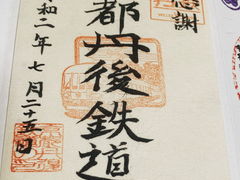 感謝
都丹後鉄道
和二年七月二十五日